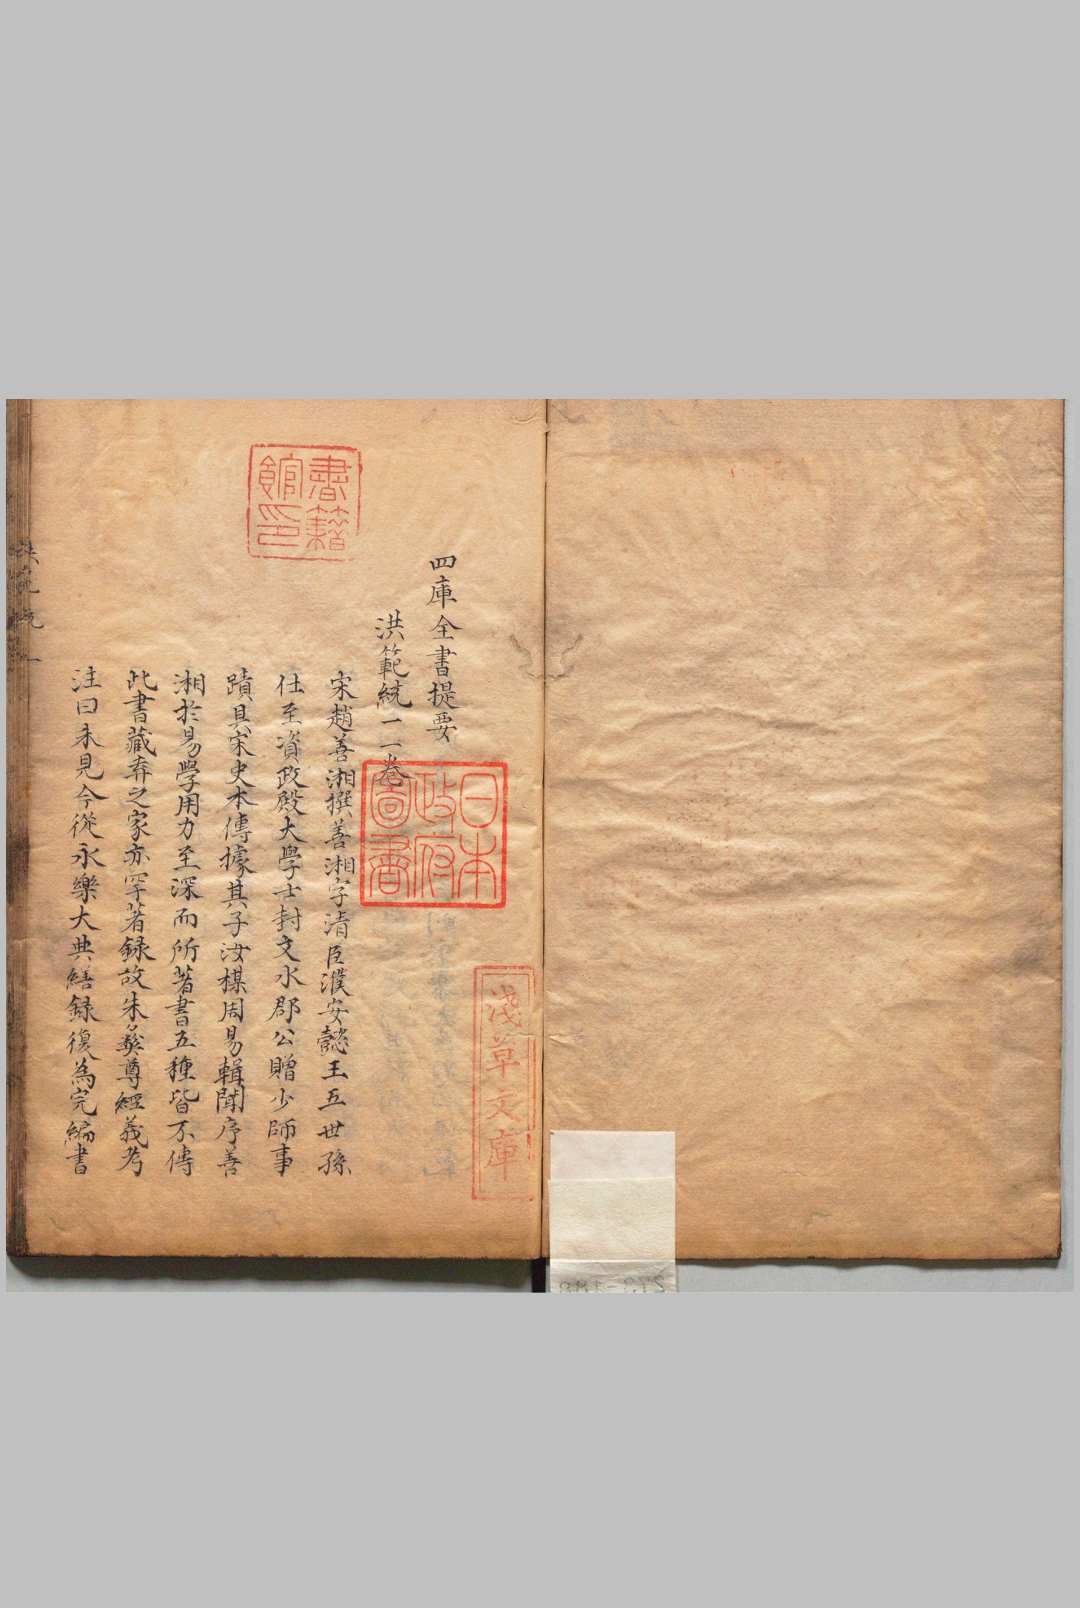 四庫全書提要
洪範統一二卷
宋趙善湘撰善湘字清臣濮安懿王五世孫
仕至資政殿大學士封文水郡公贈少師事
蹟具宋史本傳據其子汝楳周易輯聞序善
湘於易學用力至深而所著書五種皆不傳
此書藏弆之家亦罕著録故朱彞尊經義考
注曰未見今從永樂大典繕録復為完編書
書籍館印
日本政府圖書
淺草文庫